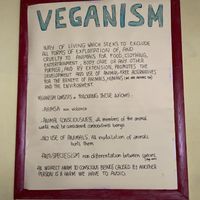 VEGANISM
WAY OF LIVING WHICH SEEKS TO EXCLUDE
ALL FORMS OF EXPLOITATION OF, AND
CRUELTY TO ANIMALS FOR FOOD, CLOTHING,
ENTERTAINMENT, BODY CARE OR ANY OTHER
PURPOSE, AND BY EXTENSION, PROMOTES THE
DEVELOPMENT AND USE OF ANIMAL-FREE ALTERNATIVES
FOR THE BENEFIT OF ANIMALS, HUMANS AND THE
ENVIRONMENT.
VEGANISM CONSISTS IN FOLLOWING THESE AXIOMS:
-AHIMSA non violence
-ANIMAL CONSCIOUSNESS, all members of the animal
world must be considered consciousness beings
-NO USE OF ANIMALS, All of animals
hurts them
-ANTISPECIESISM non differentiation between
AN INDIRECT HARM TO CONSCIOUS BEINGS CAUSED BY ANOTHER
PERSON IS A HARM WE HAVE TO AVOID.